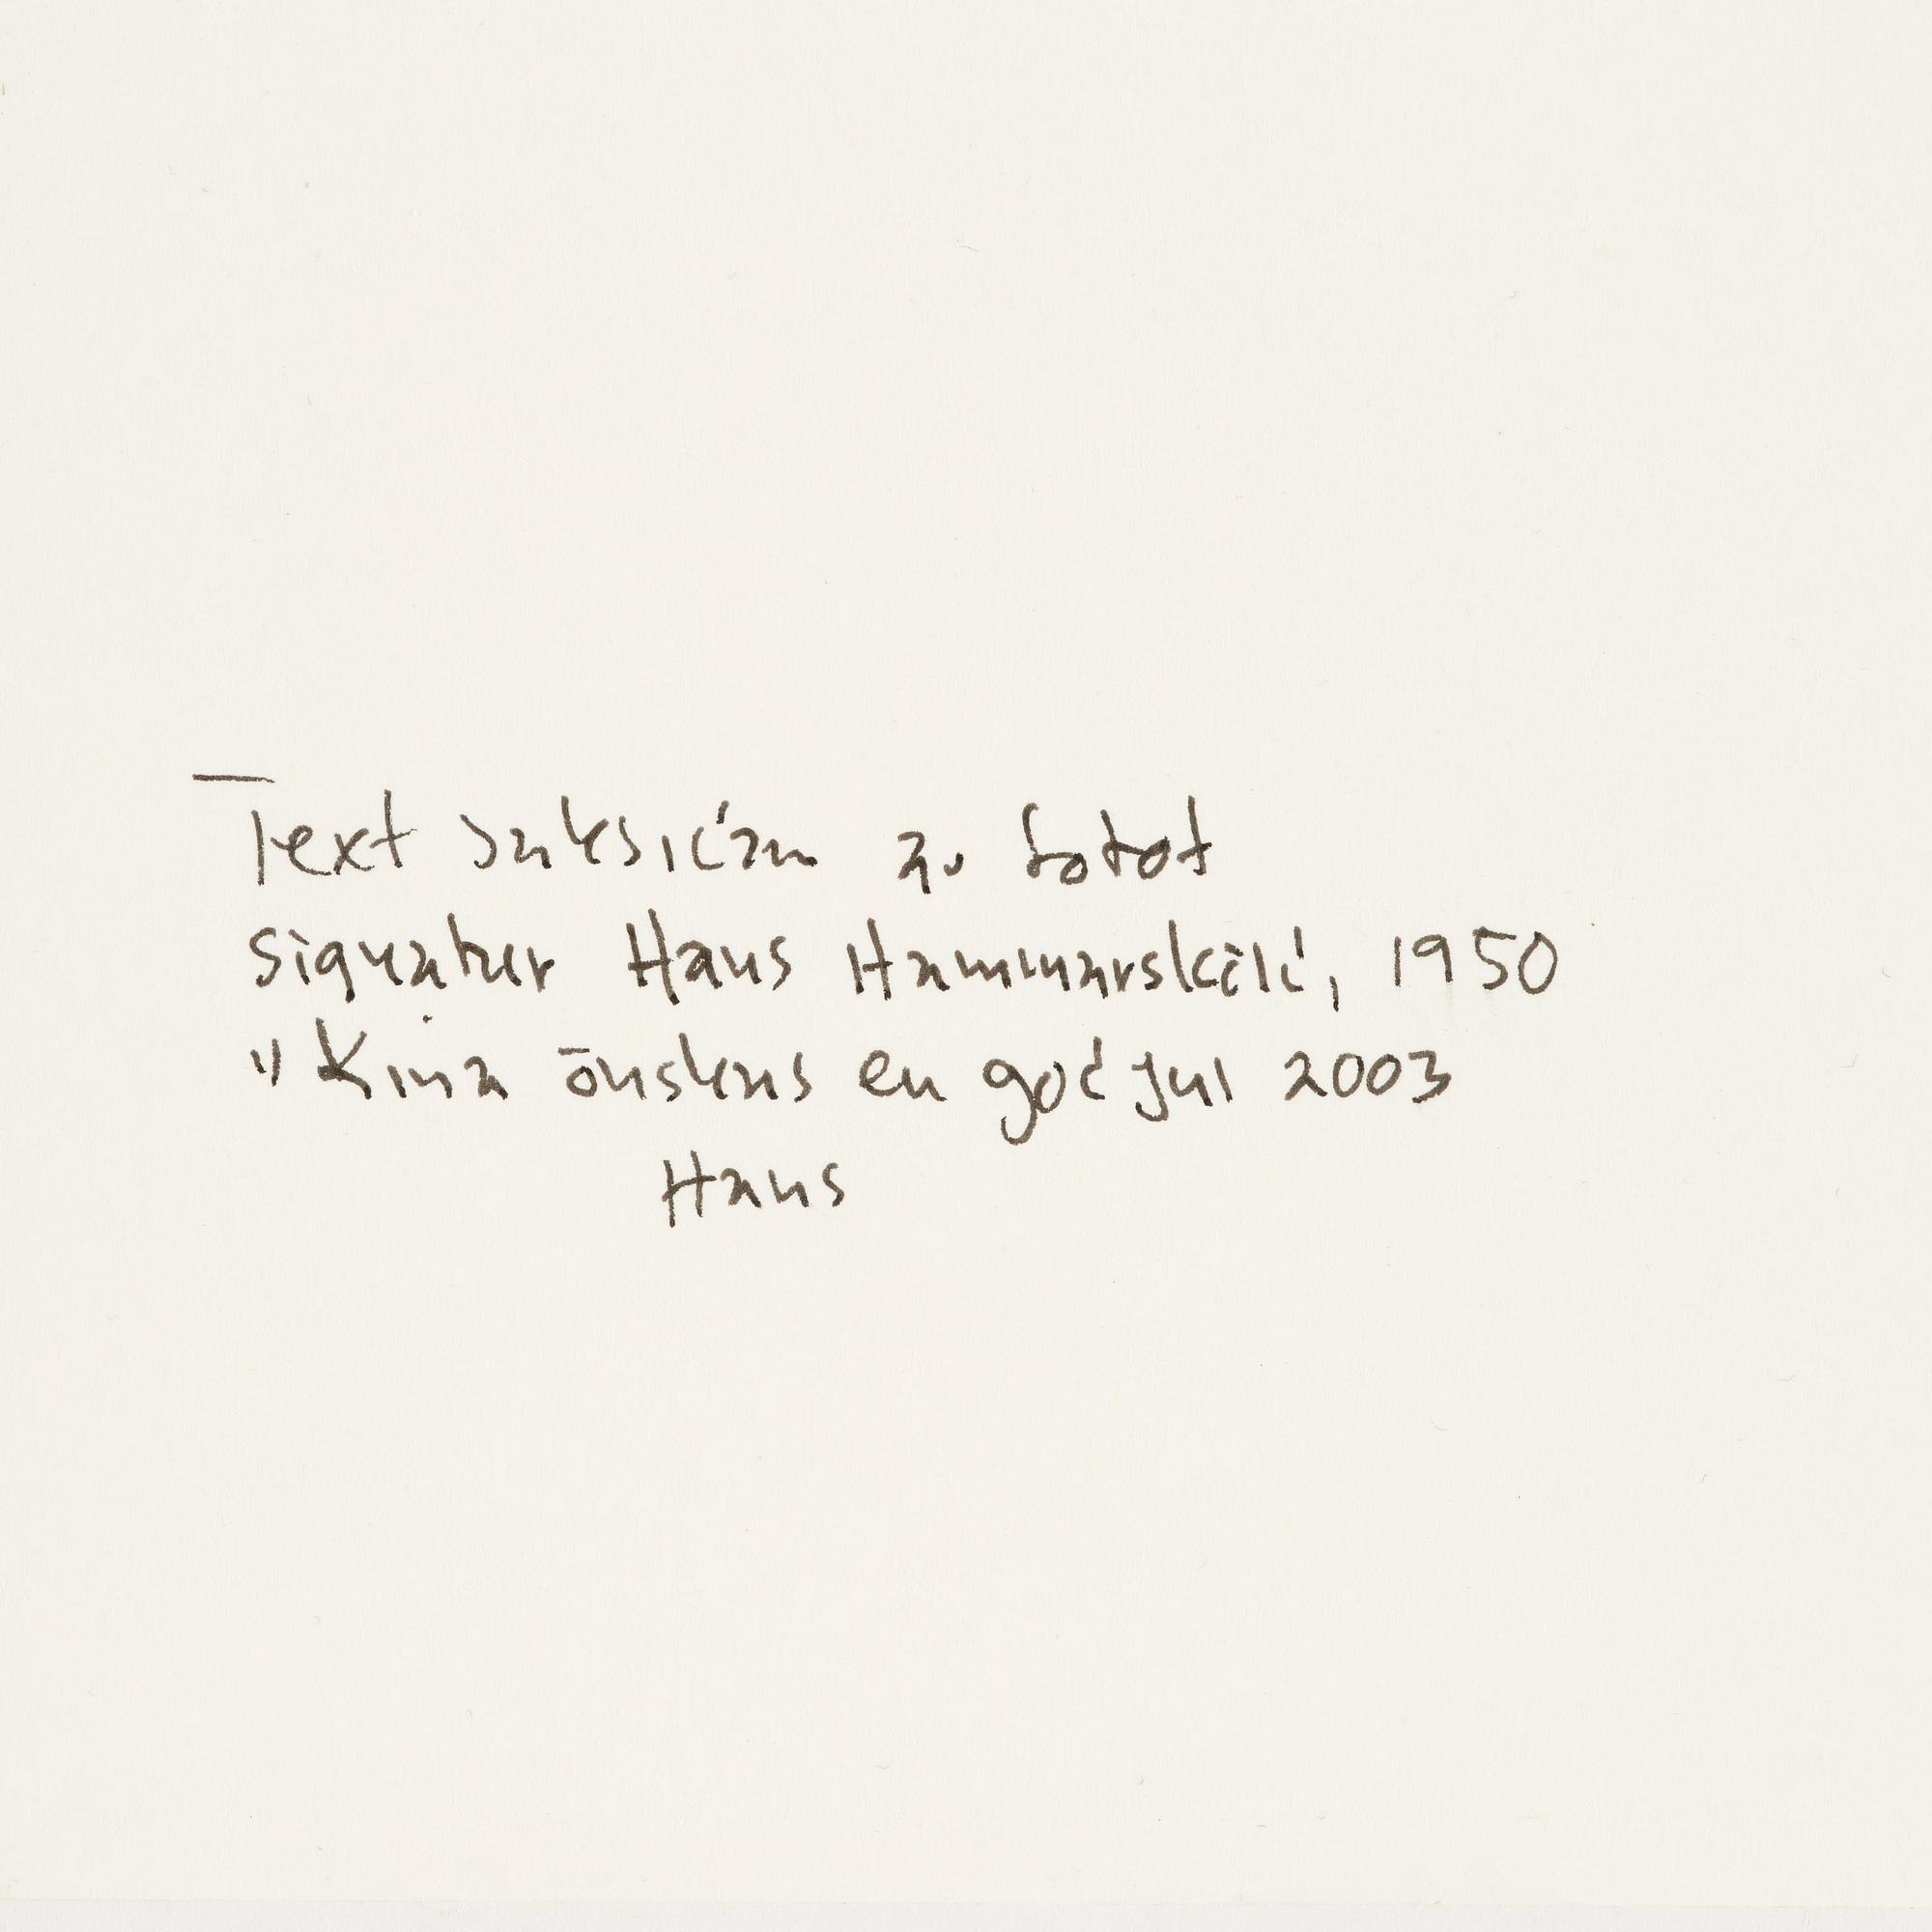 Text baksidan av fotot
Signatur Hans Hammarskiöld, 1950
"Kina önskas en god jul 2003
Hans